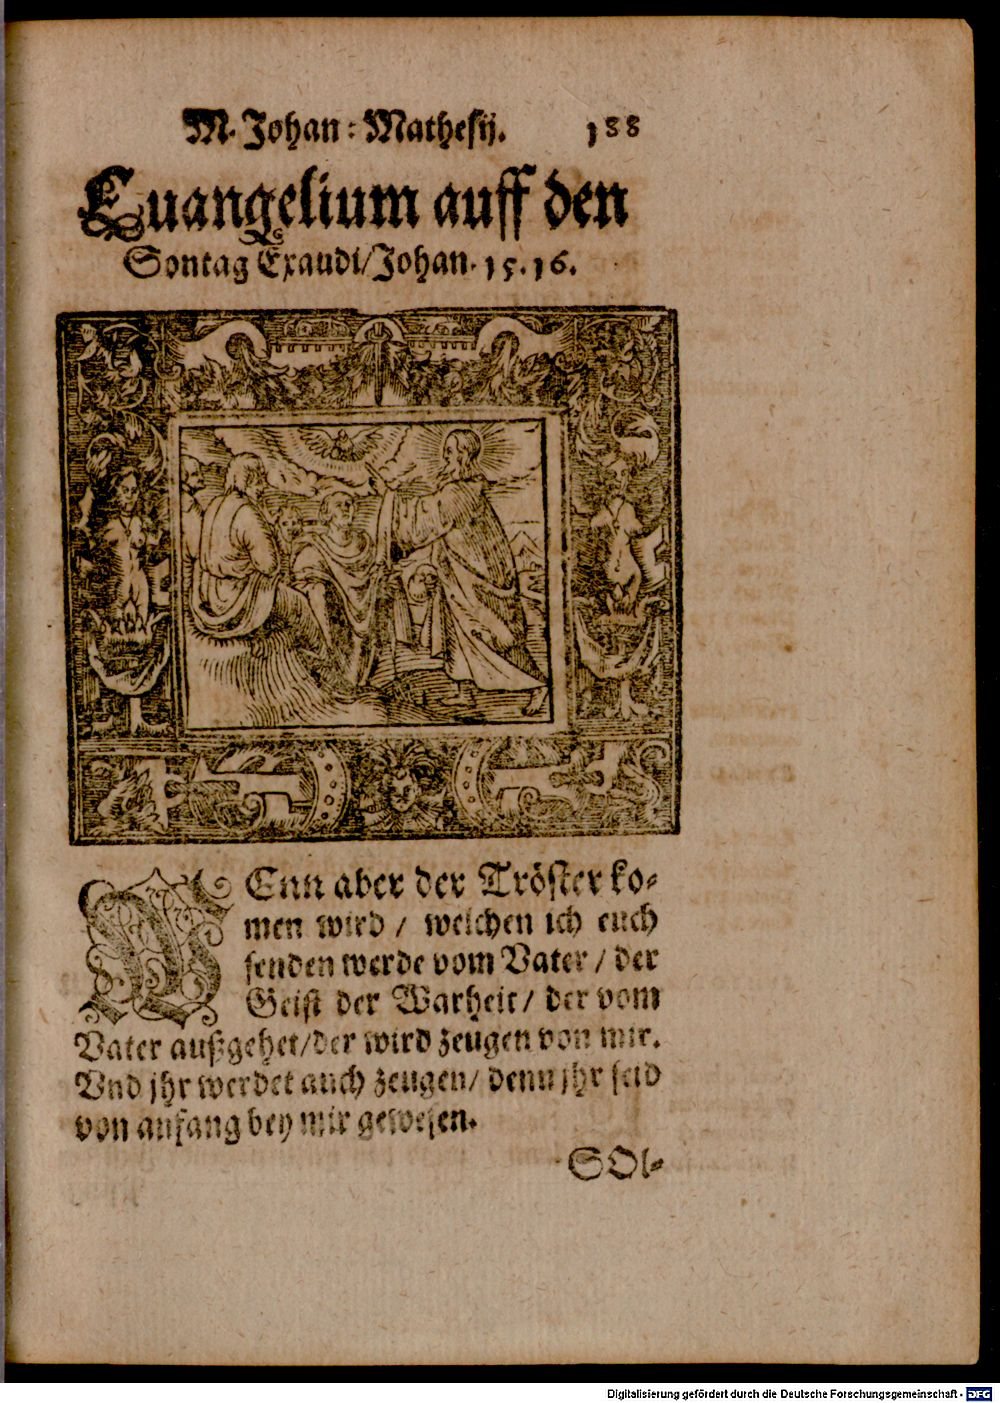 M. Johan: Mathesij. 188
Euangelium auff den
Sontag Exaudi/Johan. 15. 16.
WEnn aber der Tröster ko-
men wird / welchen ich euch
senden werde vom Vater / der
Geist der Warheit / der vom
Vater außgehet/der wird zeugen von mir.
Vnd jhr werdet auch zeugen/ denn jhr seid
von anfang bey mir gewesen.
SOl-
Digitalisierung gefördert durch die Deutsche Forschungsgemeinschaft - DFG